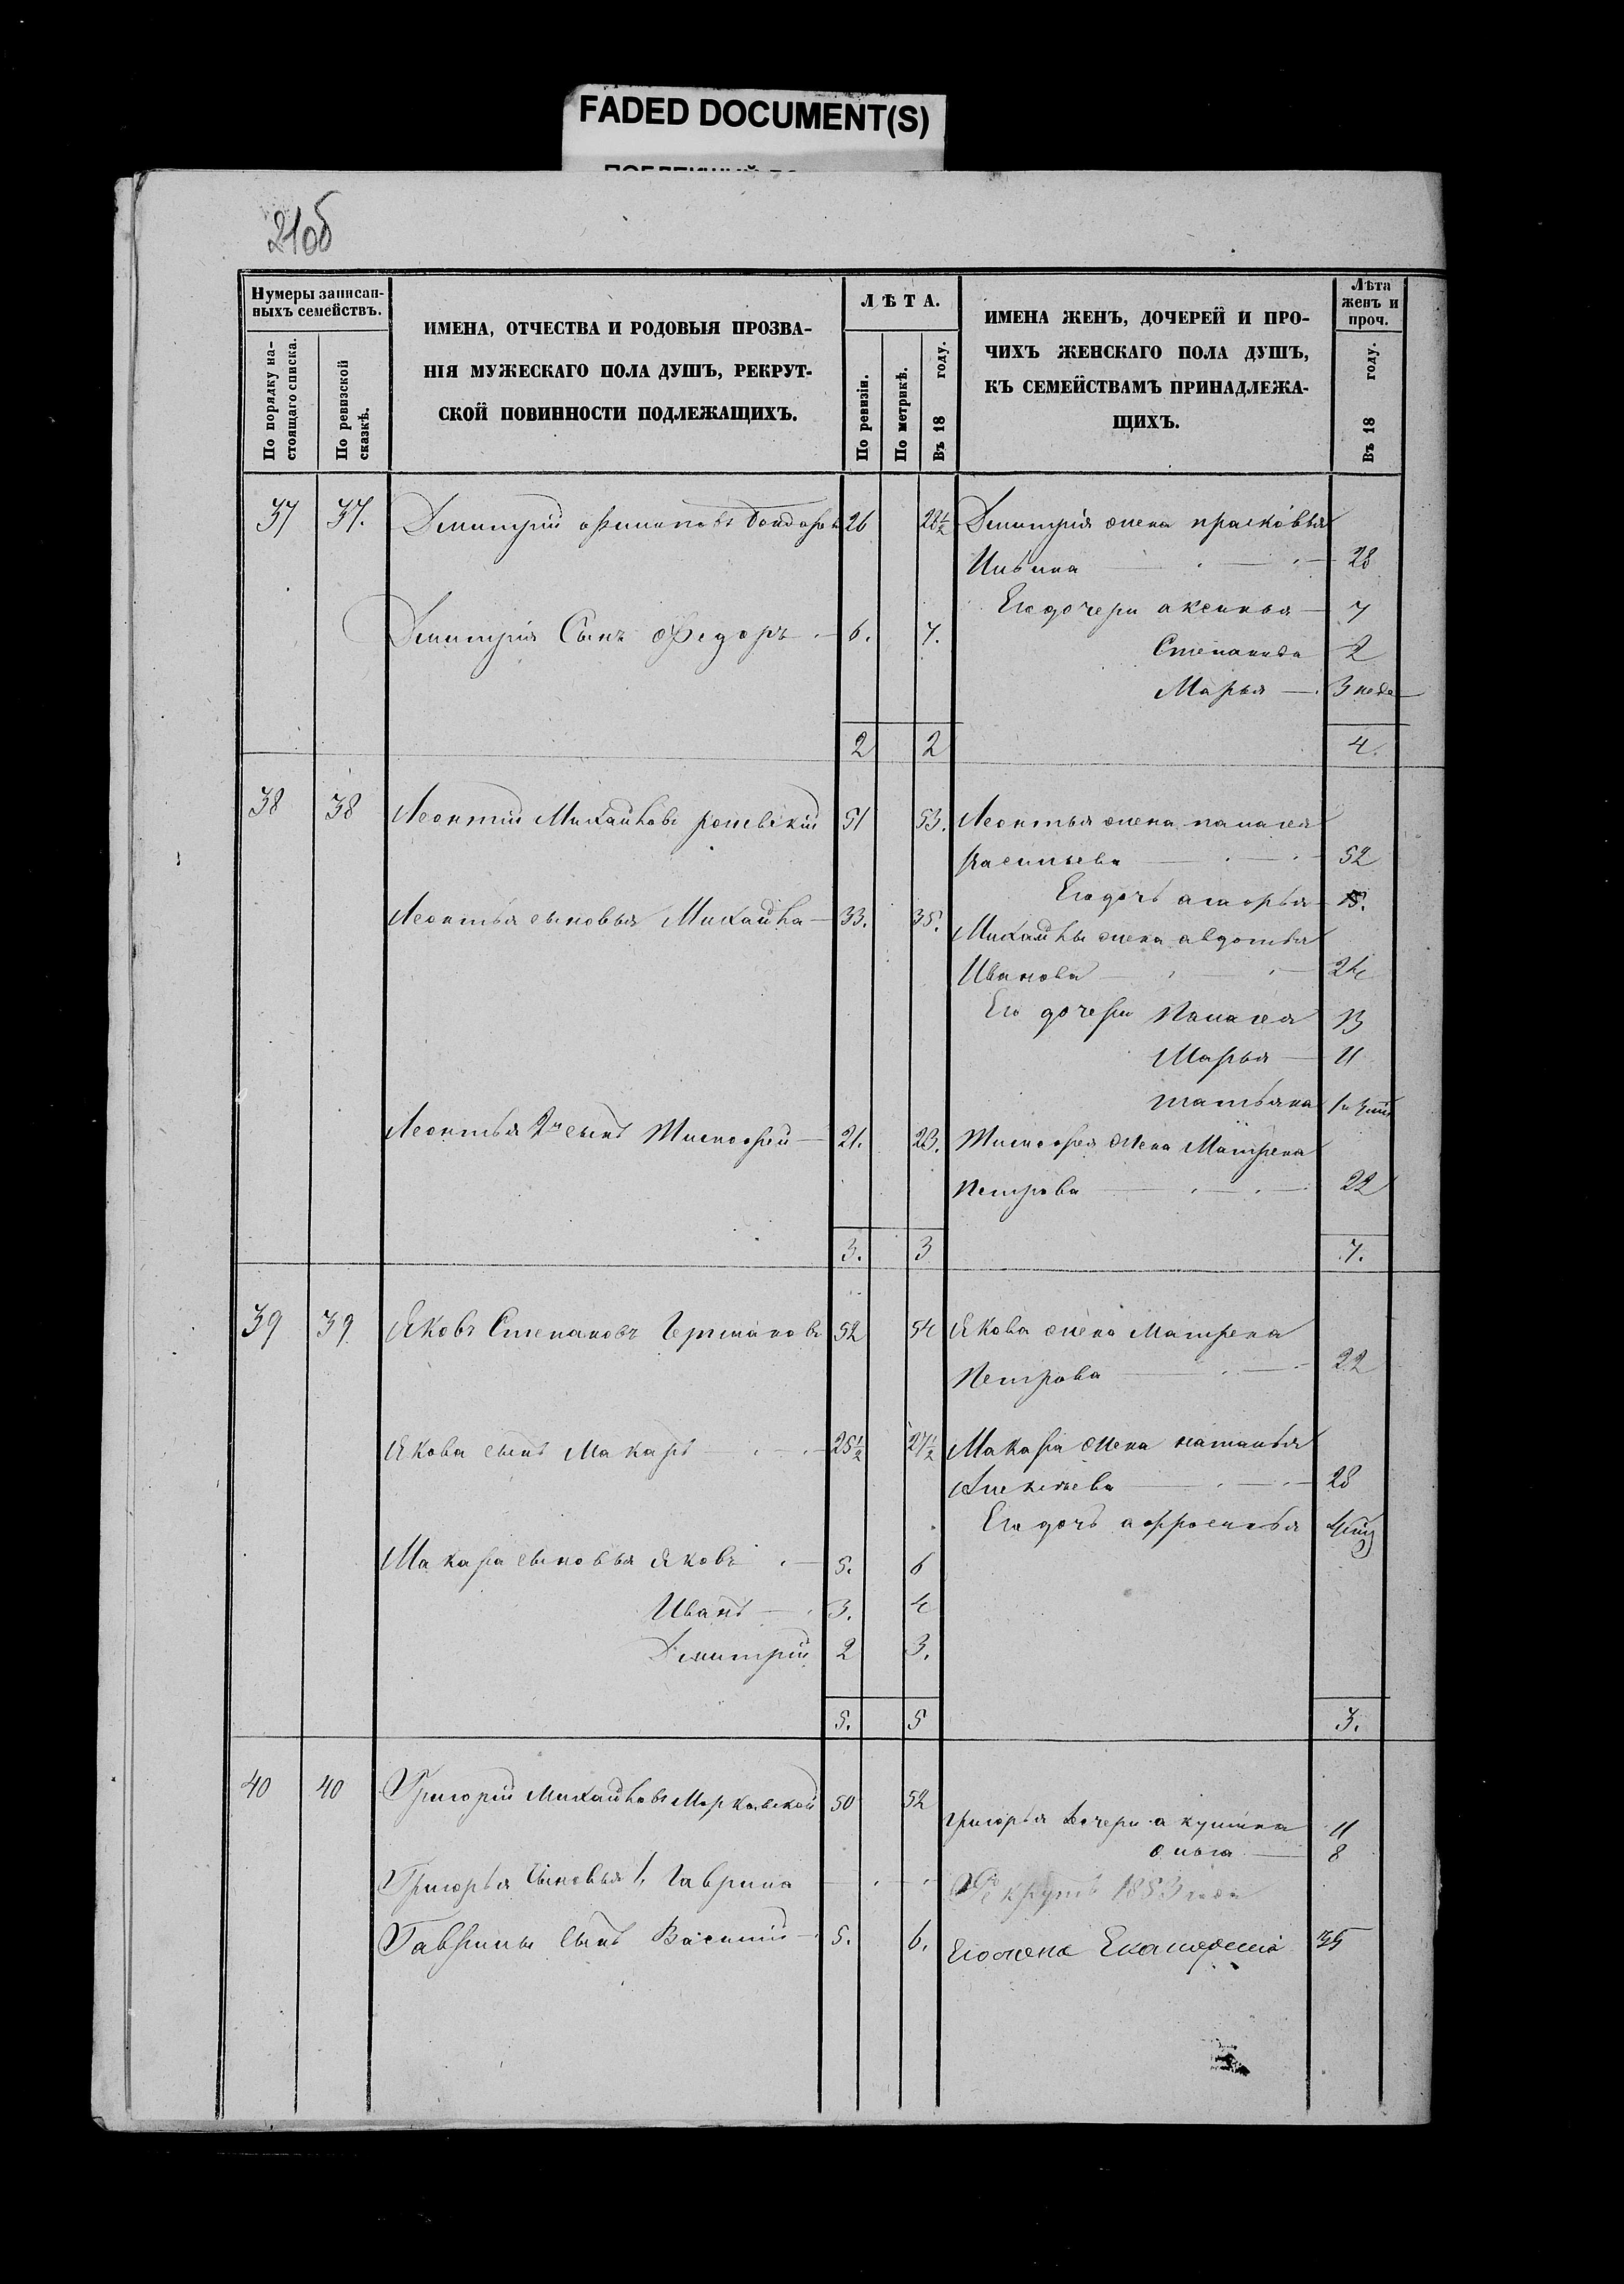 FADED DOCUMENT(S)
21об
Нумеры записан-
ныхъ семействъ.
По порядку на-
стоящаго списка.
По ревизской
сказкѣ.
ИМЕНА, ОТЧЕСТВА И РОДОВЫЯ ПРОЗВА-
НІЯ МУЖЕСКАГО ПОЛА ДУШЪ, РЕКРУТ-
СКОЙ ПОВИННОСТИ ПОДЛЕЖАЩИХЪ.
ЛѢТА.
По ревизіи.
По метрикѣ.
Въ 18 году.
ИМЕНА ЖЕНЪ, ДОЧЕРЕЙ И ПРО-
ЧИХЪ ЖЕНСКАГО ПОЛА ДУШЪ,
КЪ СЕМЕЙСТВАМЪ ПРИНАДЛЕЖА-
ЩИХЪ.
Лѣта
женъ и
проч.
Въ 18 году.
37 37. Дмитрій 26 28½ Дмитрія жена прасковья
Ильина 28
Его дочери аксинья 7
Дмитрія Сынъ Ѳедоръ 6. 7.
Степанида 2
Марья 3 неде
2 2 4.
38 38 Леонтій Михайловъ 51 53. Леонтья жена паласея
Васильева 52
Его дочь 15.
Леонтья сыновья Михайла 33. 35.
Михайлы жена авдотья
Иванова 24
Его дочери Паласея 13
Марья 11
татьяна
Леонтья 2й сынъ Тимофей 21. 23. Тимофея жена Матрена
Петрова 22
3. 3 7.
39 39 Яковъ Степановъ Германовъ 52 54 Якова жена Матрена
Петрова 22
Якова сынъ Макаръ 25½ 27½ Макара жена наталья
Алексѣева 28
Его дочь афросинья
Макара сыновья Яковъ 5. 6
Иванъ 3. 4
Дмитрій 2 3.
5. 5 3.
40 40 Григорій Михайловъ Марковской 50 52
Григорья дочери акулина 11
ольга 8
Григорья Сыновья 1, Гаврила
Рекрутъ 1853 года
Гаврилы Сынъ Василій 5. 6. Его жена 35